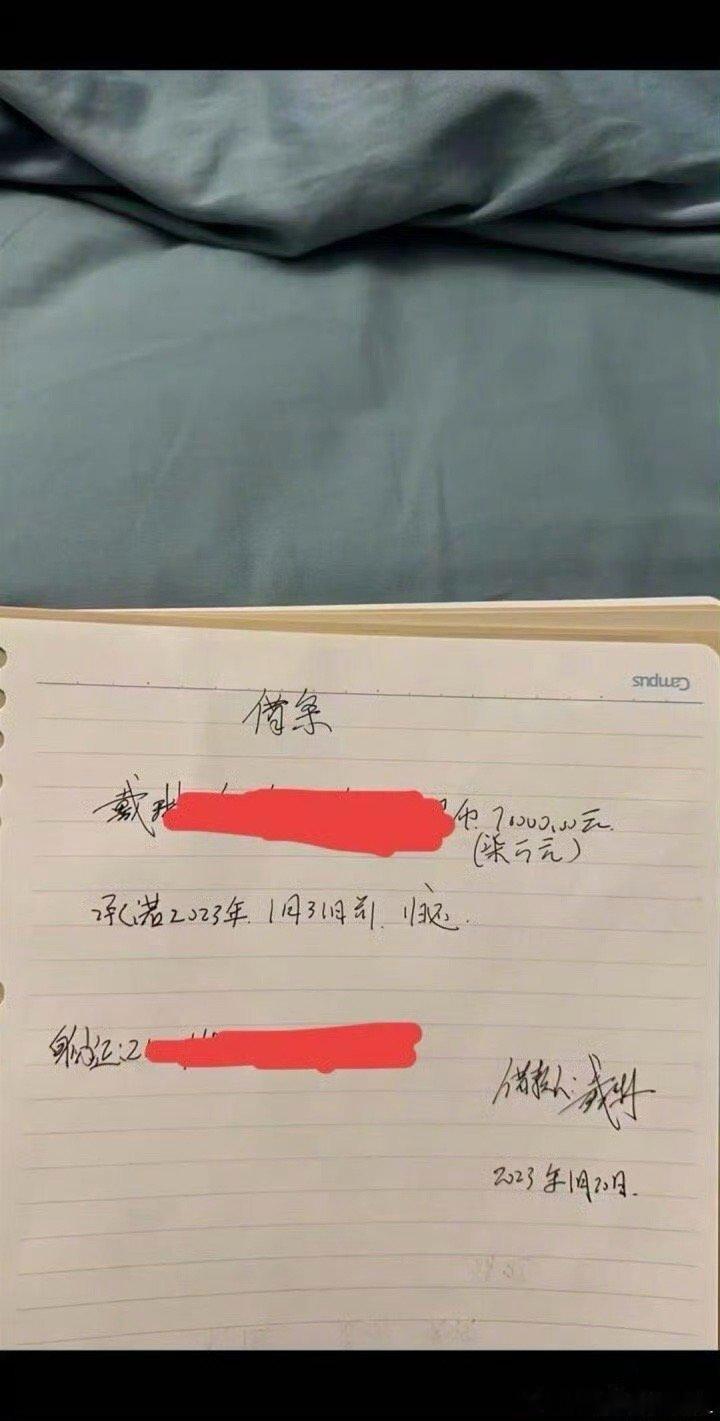 Campus
借条
戴琳 币 70000.00元
(柒万元)
承诺2023年1月31日前归还.
身份证:2
借款人:戴琳
2023年1月20日.